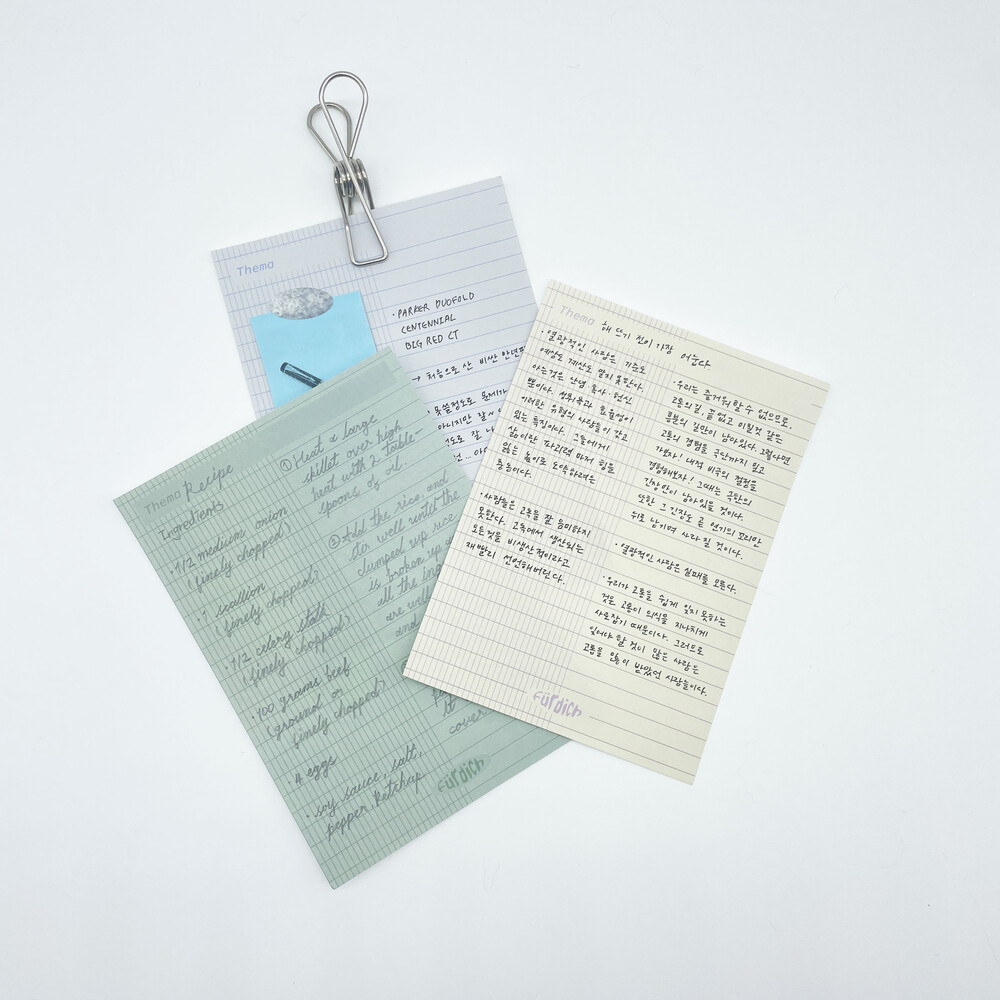 Thema
· PARKER DUOFOLD
CENTENNIAL
BIG RED CT
→ 처음으로 산 비싼 만년
못쓸정도로 문제가
아니지만 잘~
정도로 잘
Thema Recipe
Ingredients
· 1/2 medium onion
finely chopped
· 1 scallion
finely chopped
· 1/2 celery stalk
finely chopped
· 100 grams beef
(ground or
finely chopped)
· 4 eggs
· soy sauce, salt,
pepper, ketchup
① Heat a large
skillet over high
heat with 2 table-
spoons of oil.
② Add the rice, and
stir well until the
clumped up rice
is broken up
all the
are well
and
it
cover
fürdich
Thema 해 뜨기 전이 가장 어둡다.
· 열광적인 사람은 기준도
예상도 계산도 알지 못한다.
아는것은 단념·용사·헌신
뿐이다. 성취욕과 효율성이
이러한 유형의 사람들이 갖고
있는 특징이다. 그들에게
삶이란 파괴력 마저 힘을
얻는 높이로 도약하려는
충동이다.
· 사람들은 고독을 잘 음미하지
못한다. 고독에서 생산되는
모든것을 비생산적이라고
재빨리 선언해버린다.
· 우리는 즐거워 할 수 없으므로,
고통의 길, 끝없고 이럴것 같은
흥분의 길만이 남아있다. 그렇다면
가보자! 내적 비극의 절정을
경험해보자! 그때는 극단의
긴장만이 남아있을 것이다.
또한 그 긴장도 곧 연기의 꼬리만
뒤로 남기며 사라질 것이다.
· 열광적인 사람은 실패를 모른다.
· 우리가 고통을 쉽게 잊지 못하는
것은 고통이 의식을 지나치게
사로잡기 때문이다. 그러므로
잊어야 할 것이 많은 사람은
고통을 많이 받았던 사람들이다.
fürdich